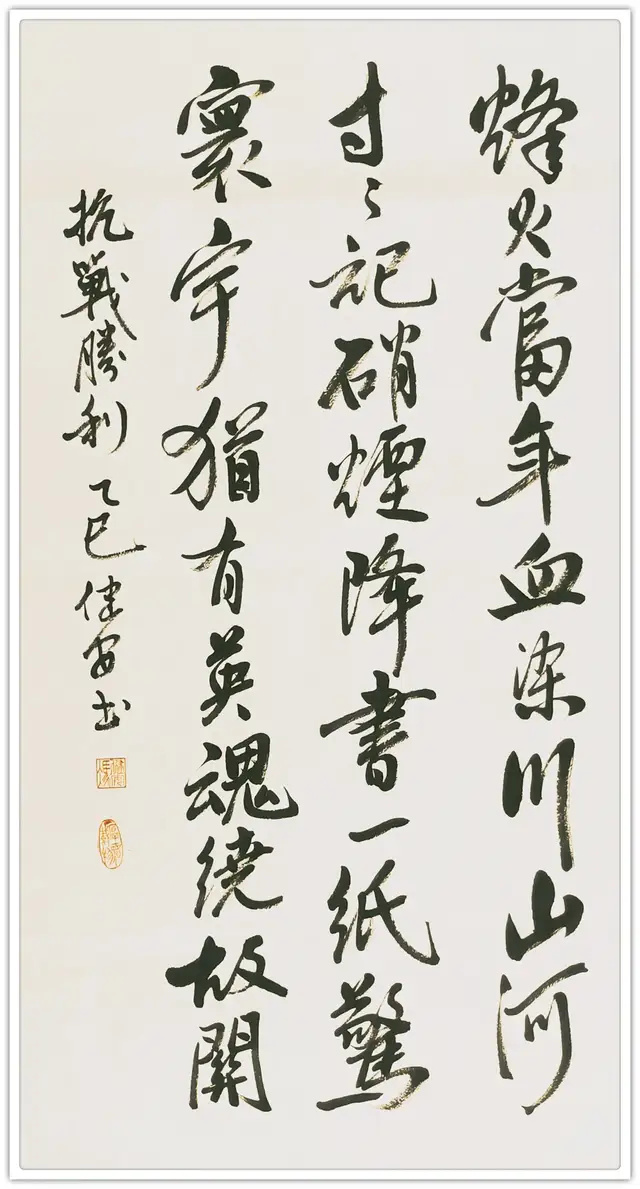 烽火當年血染川山河
寸〻記硝煙降書一紙驚
寰宇猶有英魂繞故關
抗戰勝利 乙巳 健安書